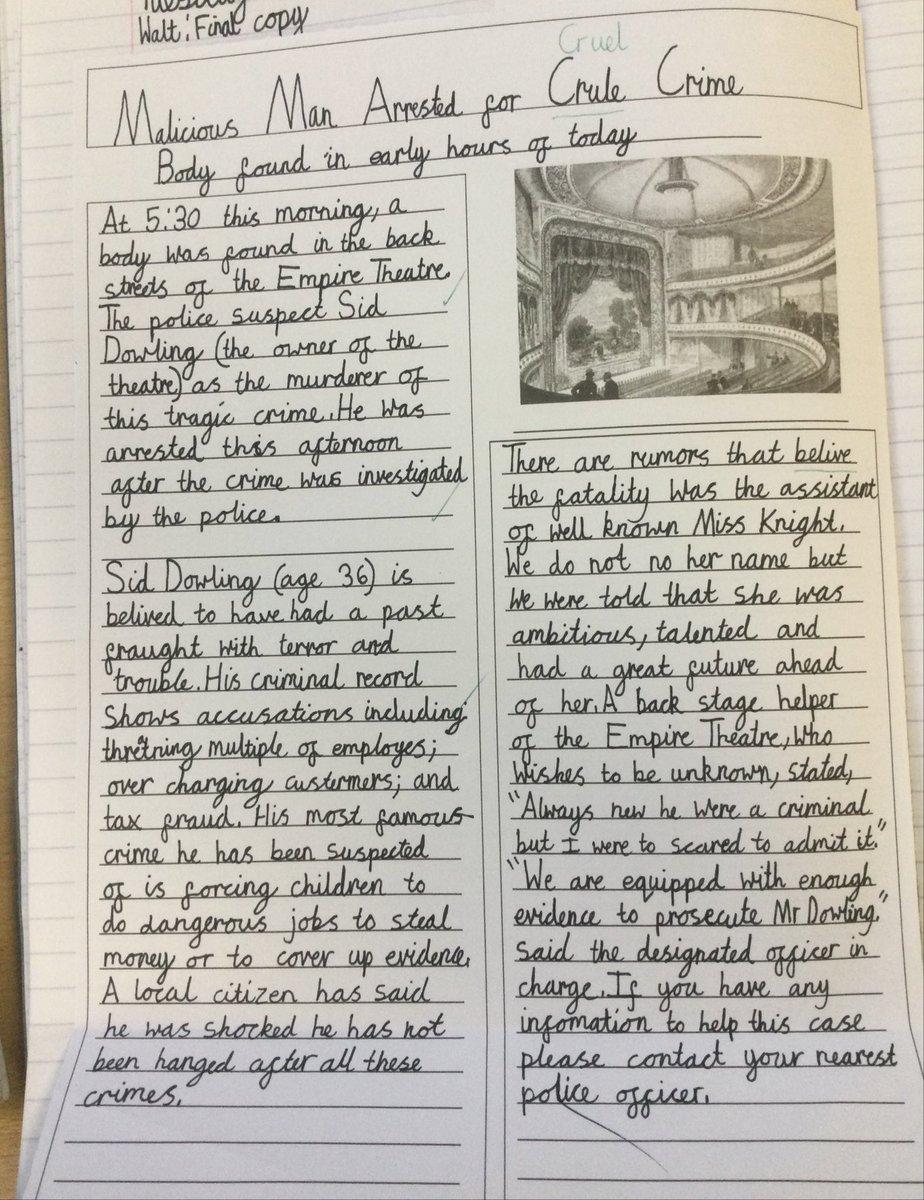 Tuesday
Walt: Final copy
Cruel
Malicious Man Arrested for Crule Crime
Body found in early hours of today
At 5:30 this morning, a
body was found in the back
streets of the Empire Theatre.
The police suspect Sid
Dowling (the owner of the
theatre) as the murderer of
this tragic crime. He was
arrested this afternoon
after the crime was investigated
by the police.
Sid Dowling (age 36) is
belived to have had a past
fraught with terror and
trouble. His criminal record
shows accusations including
thretning multiple of employes;
over charging custermers; and
tax fraud. His most famous
crime he has been suspected
of is forcing children to
do dangerous jobs to steal
money or to cover up evidence.
A local citizen has said
he was shocked he has not
been hanged after all these
crimes.
There are rumors that belive
the fatality was the assistant
of well known Miss Knight.
We do not no her name but
we were told that she was
ambitious, talented and
had a great future ahead
of her. A back stage helper
of the Empire Theatre, who
wishes to be unknown, stated,
"Always new he were a criminal
but I were to scared to admit it."
"We are equipped with enough
evidence to prosecute Mr Dowling,"
said the designated officer in
charge. If you have any
infomation to help this case
please contact your nearest
police officer.